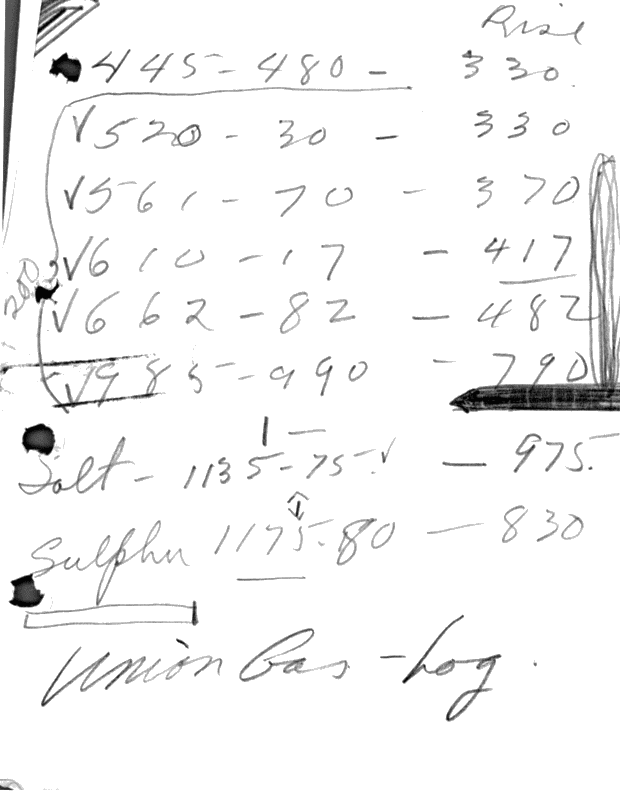 Rise
445 - 480 - 330
√520 - 30 - 330
√561 - 70 - 370
√610 - 17 - 417
200
√662 - 82 - 482
√985 - 990 - 790
Salt - 1135 - 75 √ - 975
Sulphur 1175 - 80 - 830
Union Gas - Log.